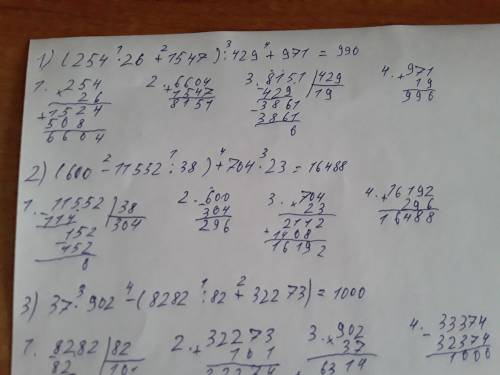 1) (254 · 26 + 1547) : 429 + 971 = 990
1 2 3 4
1. 254
× 26
+ 1524
508
6604
2. + 6604
1547
8151
3. - 8151 | 429
429 | 19
- 3861
3861
0
4. + 971
19
990
2) (600 - 11552 : 38) + 704 · 23 = 16488
2 1 4 3
1. - 11552 | 38
114 | 304
- 152
152
0
2. - 600
304
296
3. × 704
23
+ 2112
1408
16192
4. + 16192
296
16488
3) 37 · 902 - (8282 : 82 + 32273) = 1000
3 4 1 2
1. - 8282 | 82
82 | 101
2. + 32273
101
32374
3. × 902
37
6314
4. - 33374
32374
1000